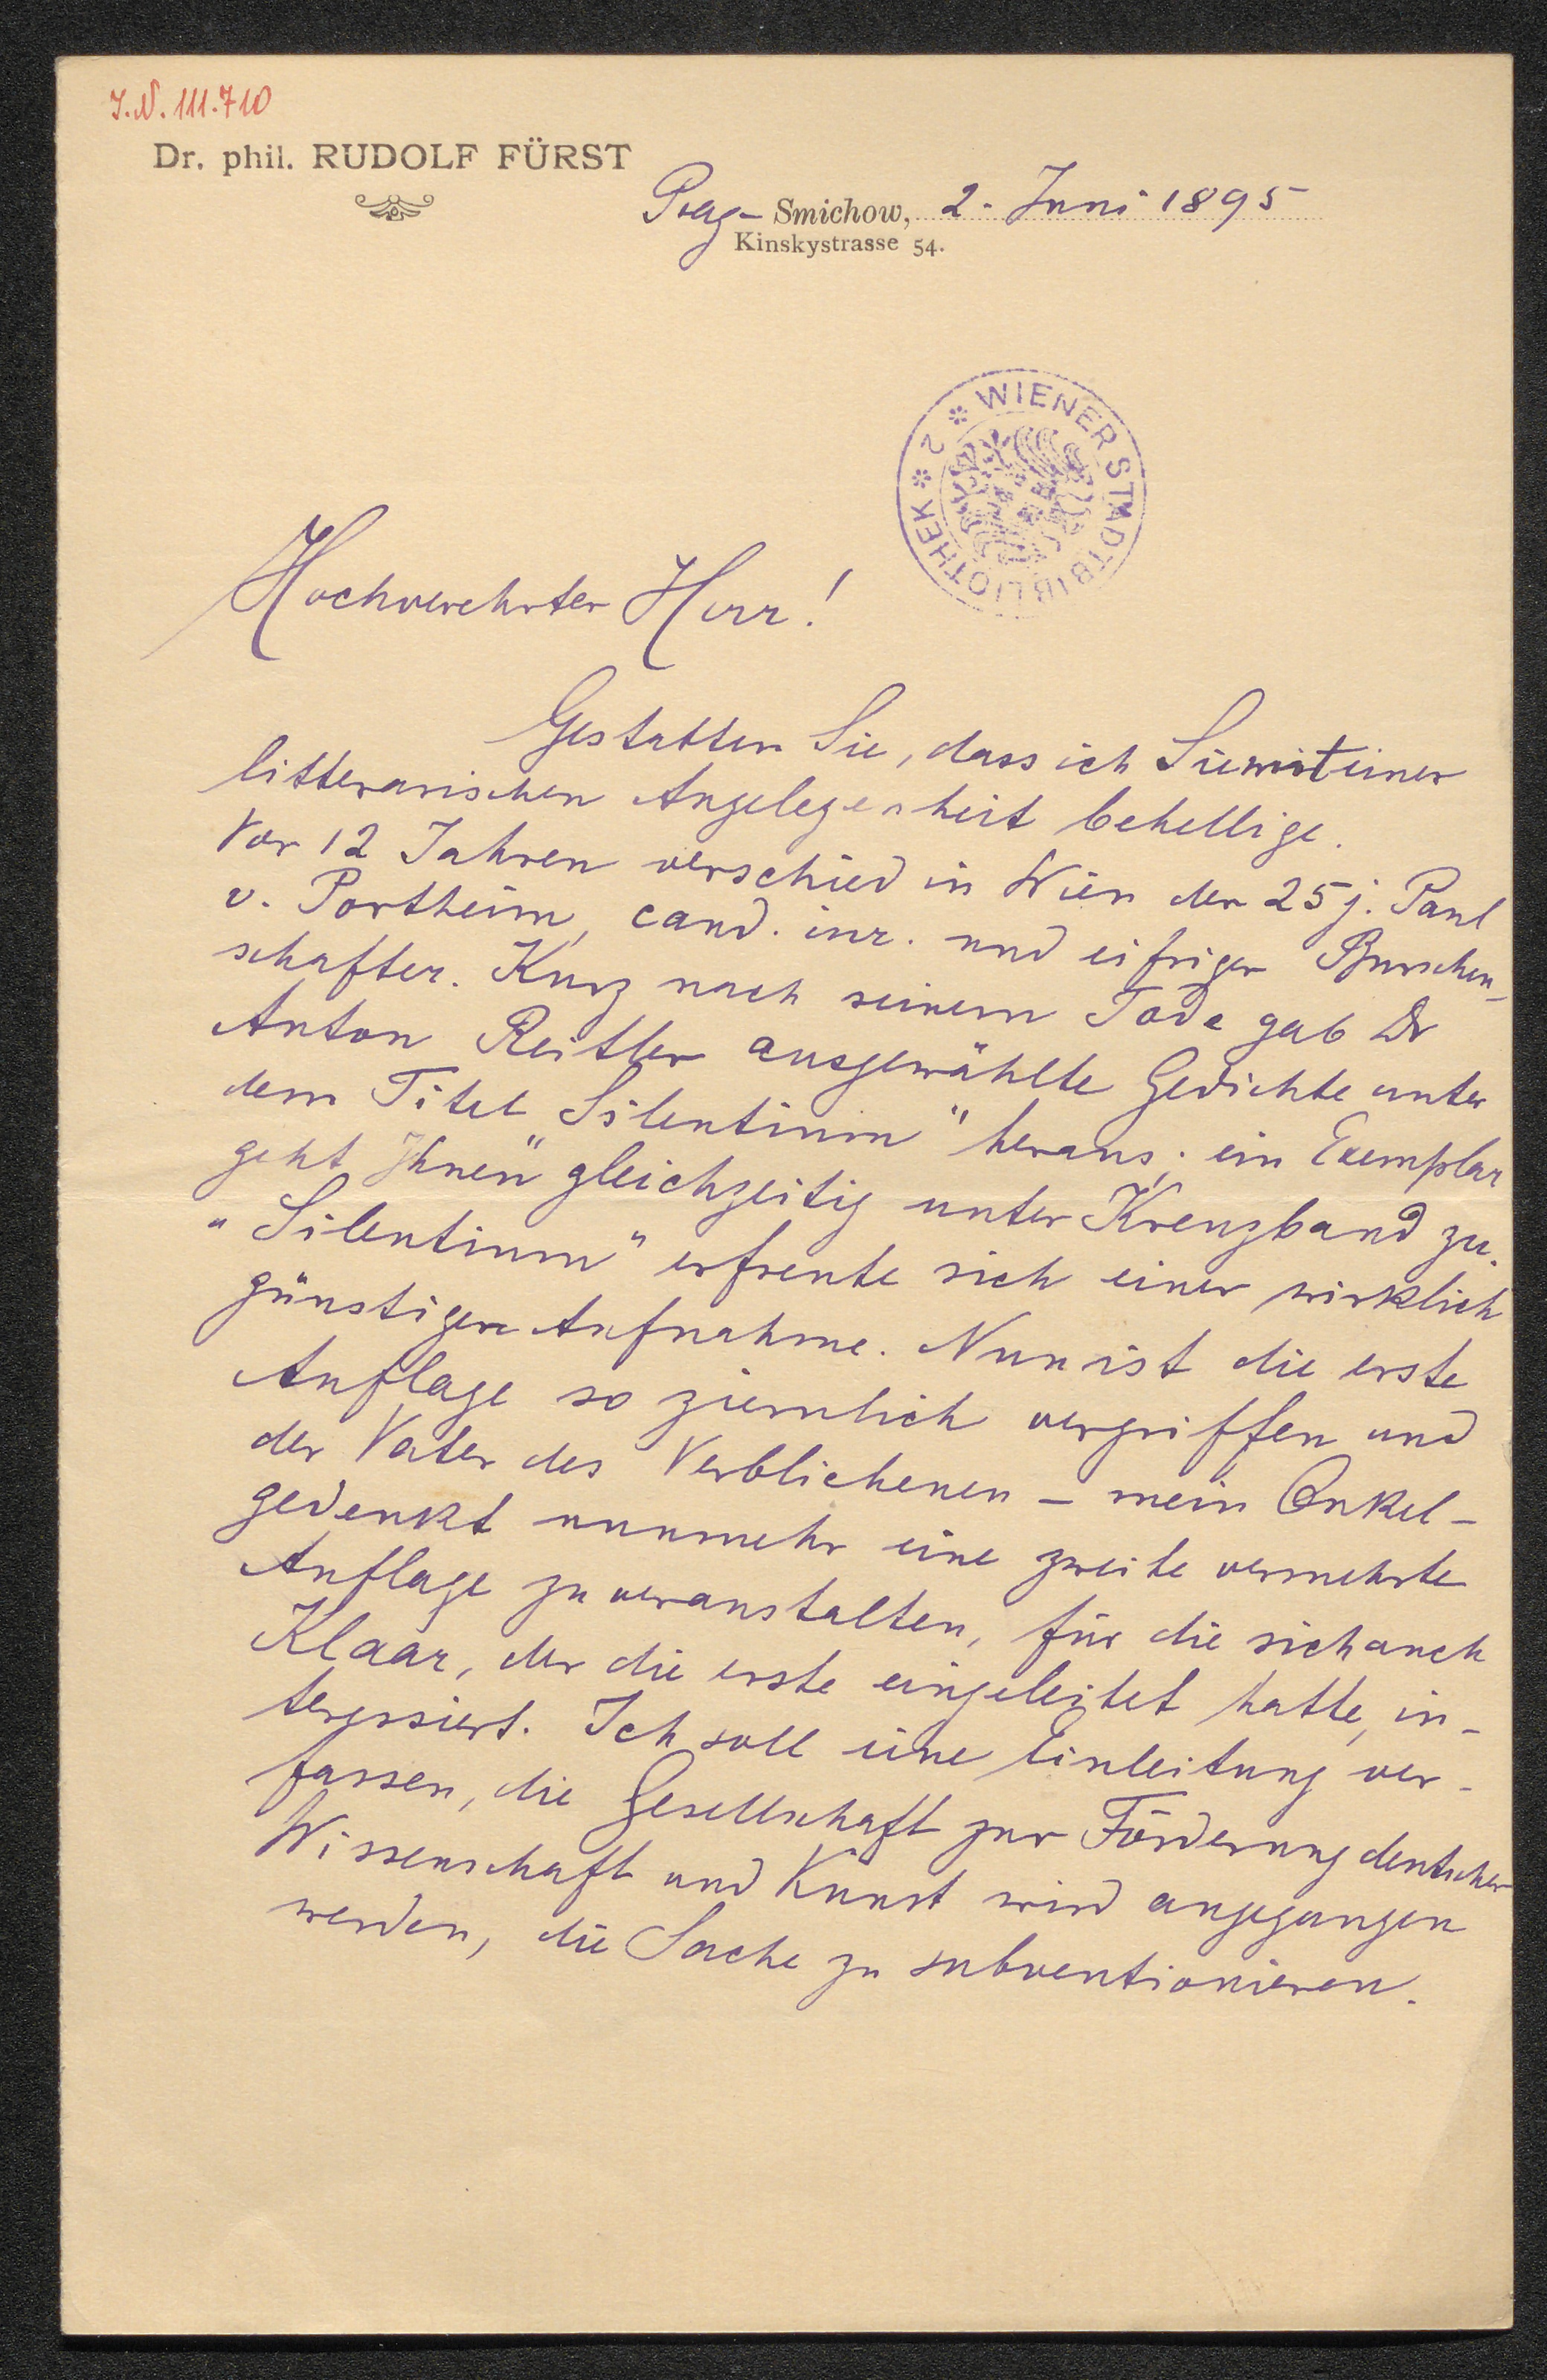 I.N. 111.710
Dr. phil. RUDOLF FÜRST
Prag- Smichow, 2. Juni 1895
Kinskystrasse 54.
* WIENER STADTBIBLIOTHEK * 2
Hochverehrter Herr!
Gestatten Sie, dass ich Sie mit einer
litterarischen Angelegenheit behellige.
Vor 12 Jahren verschied in Wien der 25 j. Paul
v. Portheim, cand. iur. und eifriger Burschen-
schafter. Kurz nach seinem Tode gab Dr
Anton Reitler ausgewählte Gedichte unter
dem Titel „Silentium" heraus; ein Exemplar
geht Ihnen gleichzeitig unter Kreuzband zu.
„Silentium" erfreute sich einer wirklich
günstigen Aufnahme. Nun ist die erste
Auflage so ziemlich vergriffen und
der Vater des Verblichenen – mein Onkel –
gedenkt nunmehr eine zweite vermehrte
Auflage zu veranstalten, für die sich auch
Klaar, der die erste eingeleitet hatte, in-
teressiert. Ich soll eine Einleitung ver-
fassen, die Gesellschaft zur Förderung deutscher
Wissenschaft und Kunst wird angegangen
werden, die Sache zu subventionieren.